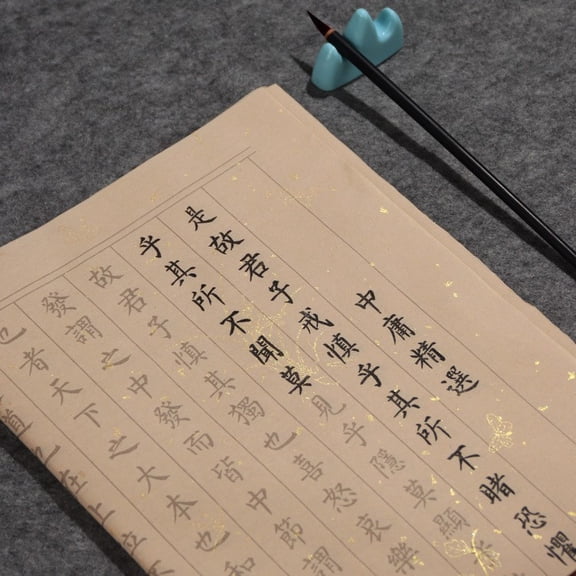 中庸精選
是故君子戒慎乎其所不睹恐懼
乎其所不聞莫見乎隱莫顯
故君子慎其獨也喜怒哀樂
發謂之中發而皆中節謂
也者天下之大本也和
道也在上位